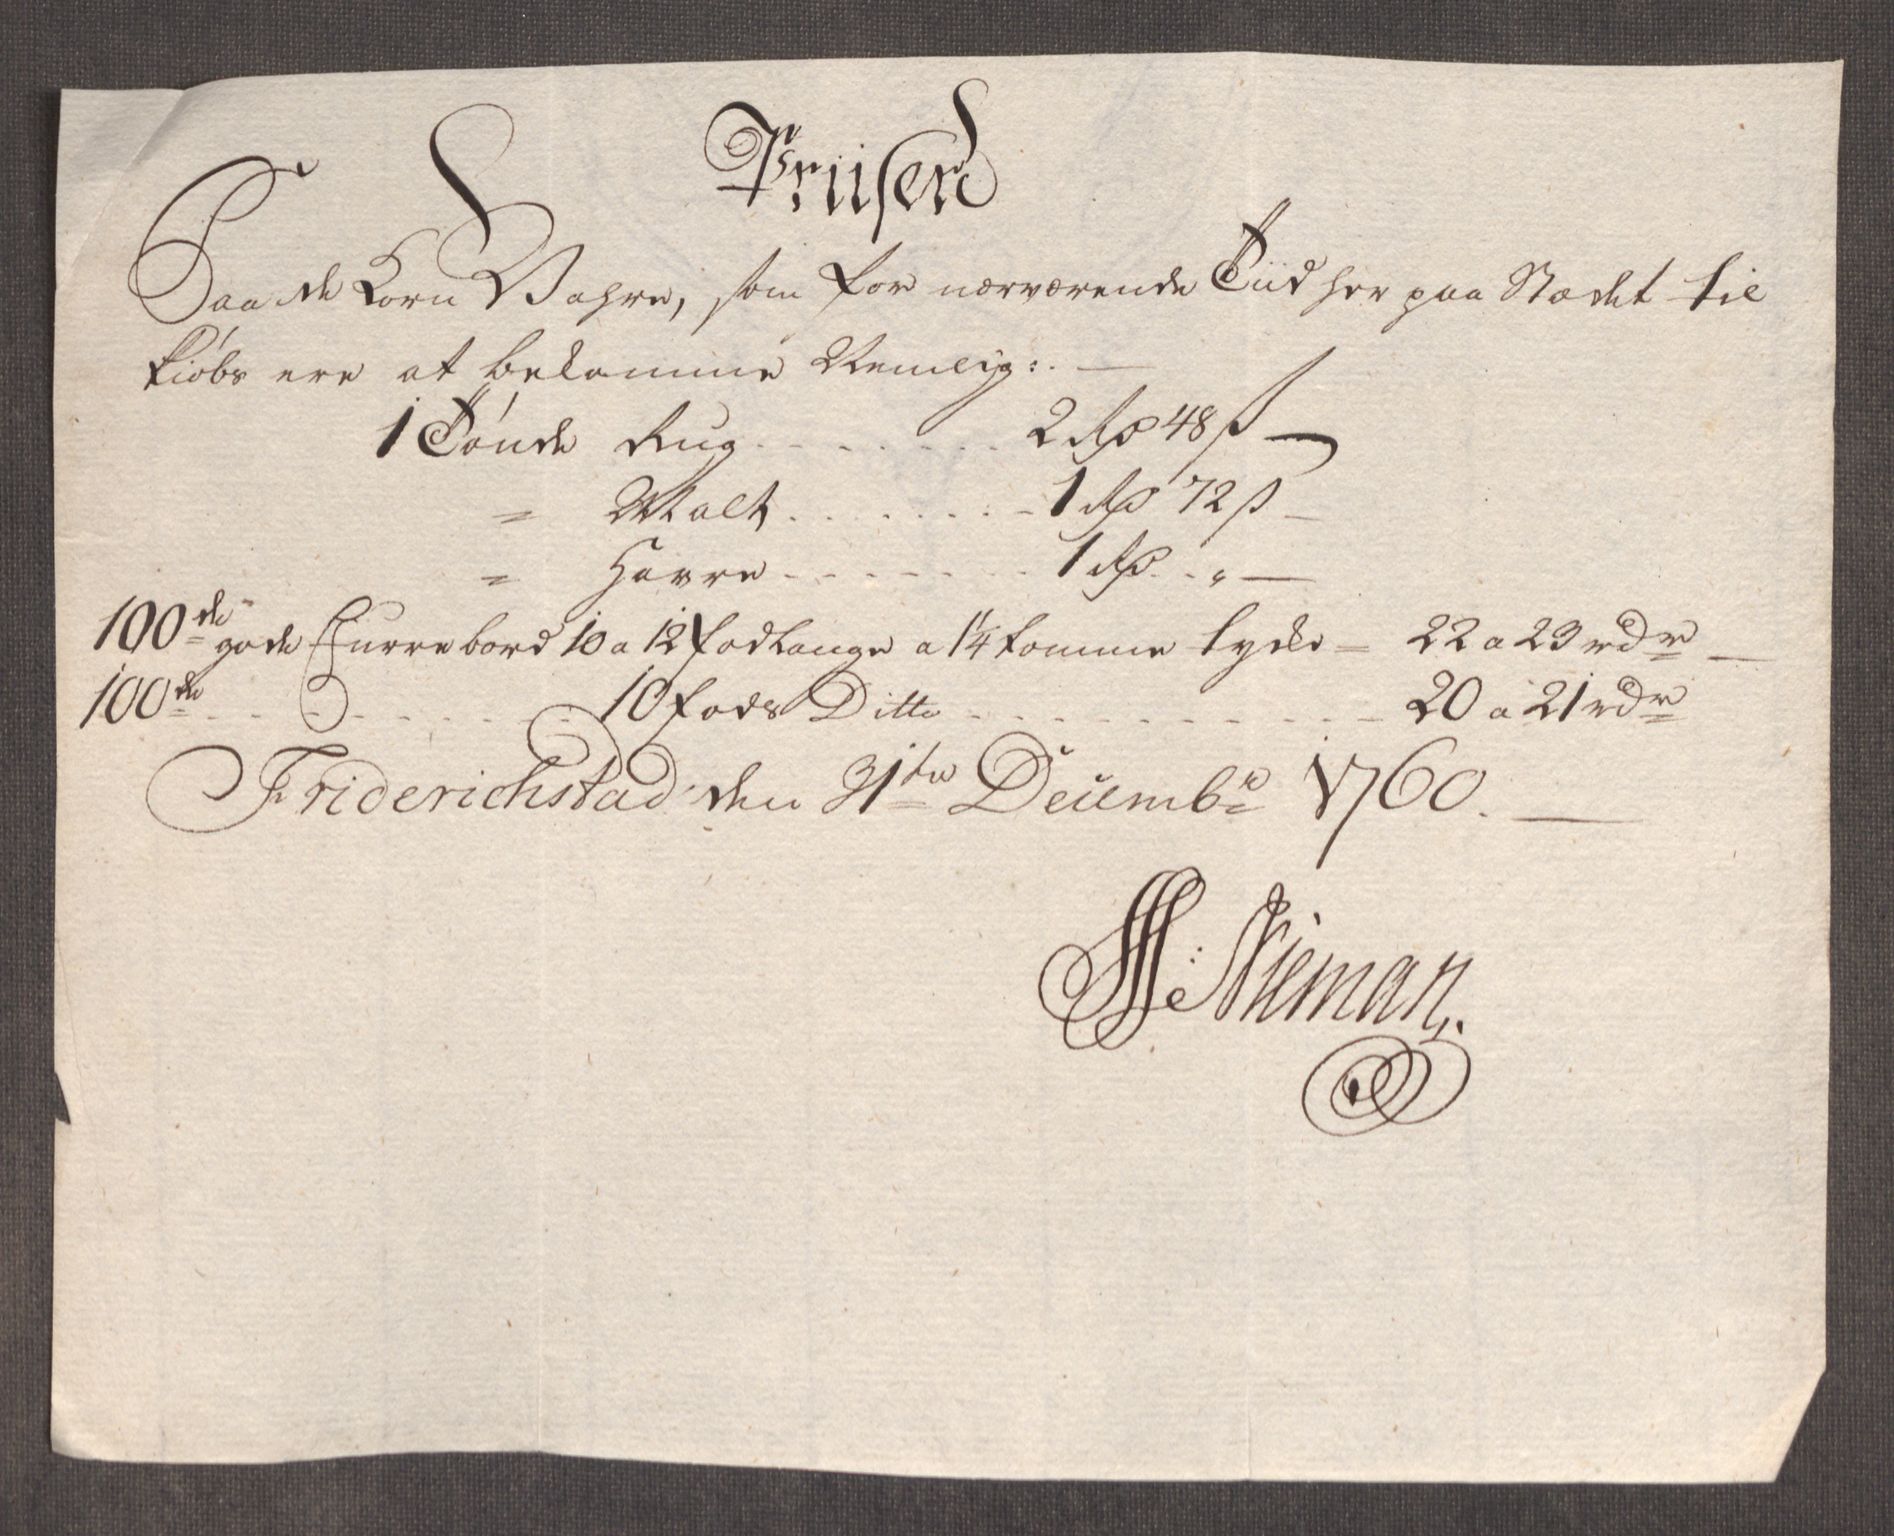 Priisen
Paa de Korn Vahre, som for nærværende Tiid her paa Stædet til
kiøbs ere at bekomme Nemlig:.
1 Tønde Rug - - - - - - - 2 Rd 48 ß
= Malt - - - - - - - 1 Rd 72 ß
= Havre - - - - - - - 1 Rd - "
100de gode Furrebord 10 a 12 fod Lange a 1 1/4 tomme tyk = 22 a 23 rdr
100de - - - - - - - 10 fods Ditto - - - - - - - 20 a 21 rdr
Friderichstad den 31te Decembr 1760.
Nieman.